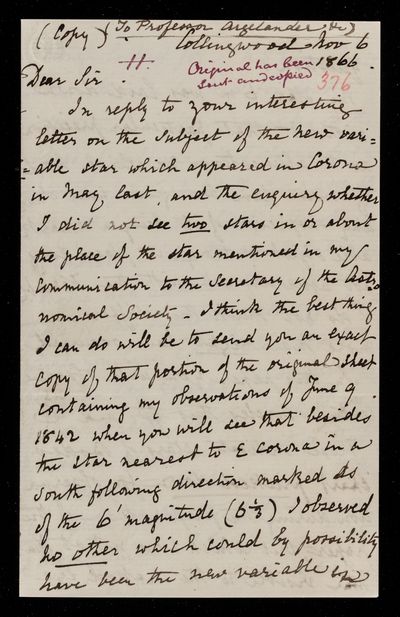 (Copy) To Professor Argelander, &c)
Collingwood Nov 6
1866
H.
Original has been
sent and copied
376
Dear Sir
In reply to your interesting
letter on the subject of the new vari=
=able star which appeared in Corona
in May last, and the enquiry whether
I did not see two stars in or about
the place of the star mentioned in my
Communication to the Secretary of the Astro=
nomical Society - I think the best thing
I can do will be to send you an exact
copy of that portion of the original sheet
containing my observations of June 9
1842 when you will see that besides
the star nearest to ε Corona in a
South following direction marked as
of the 6' magnitude (6 1/3) I observed
no other which could by possibility
have been the new variable in